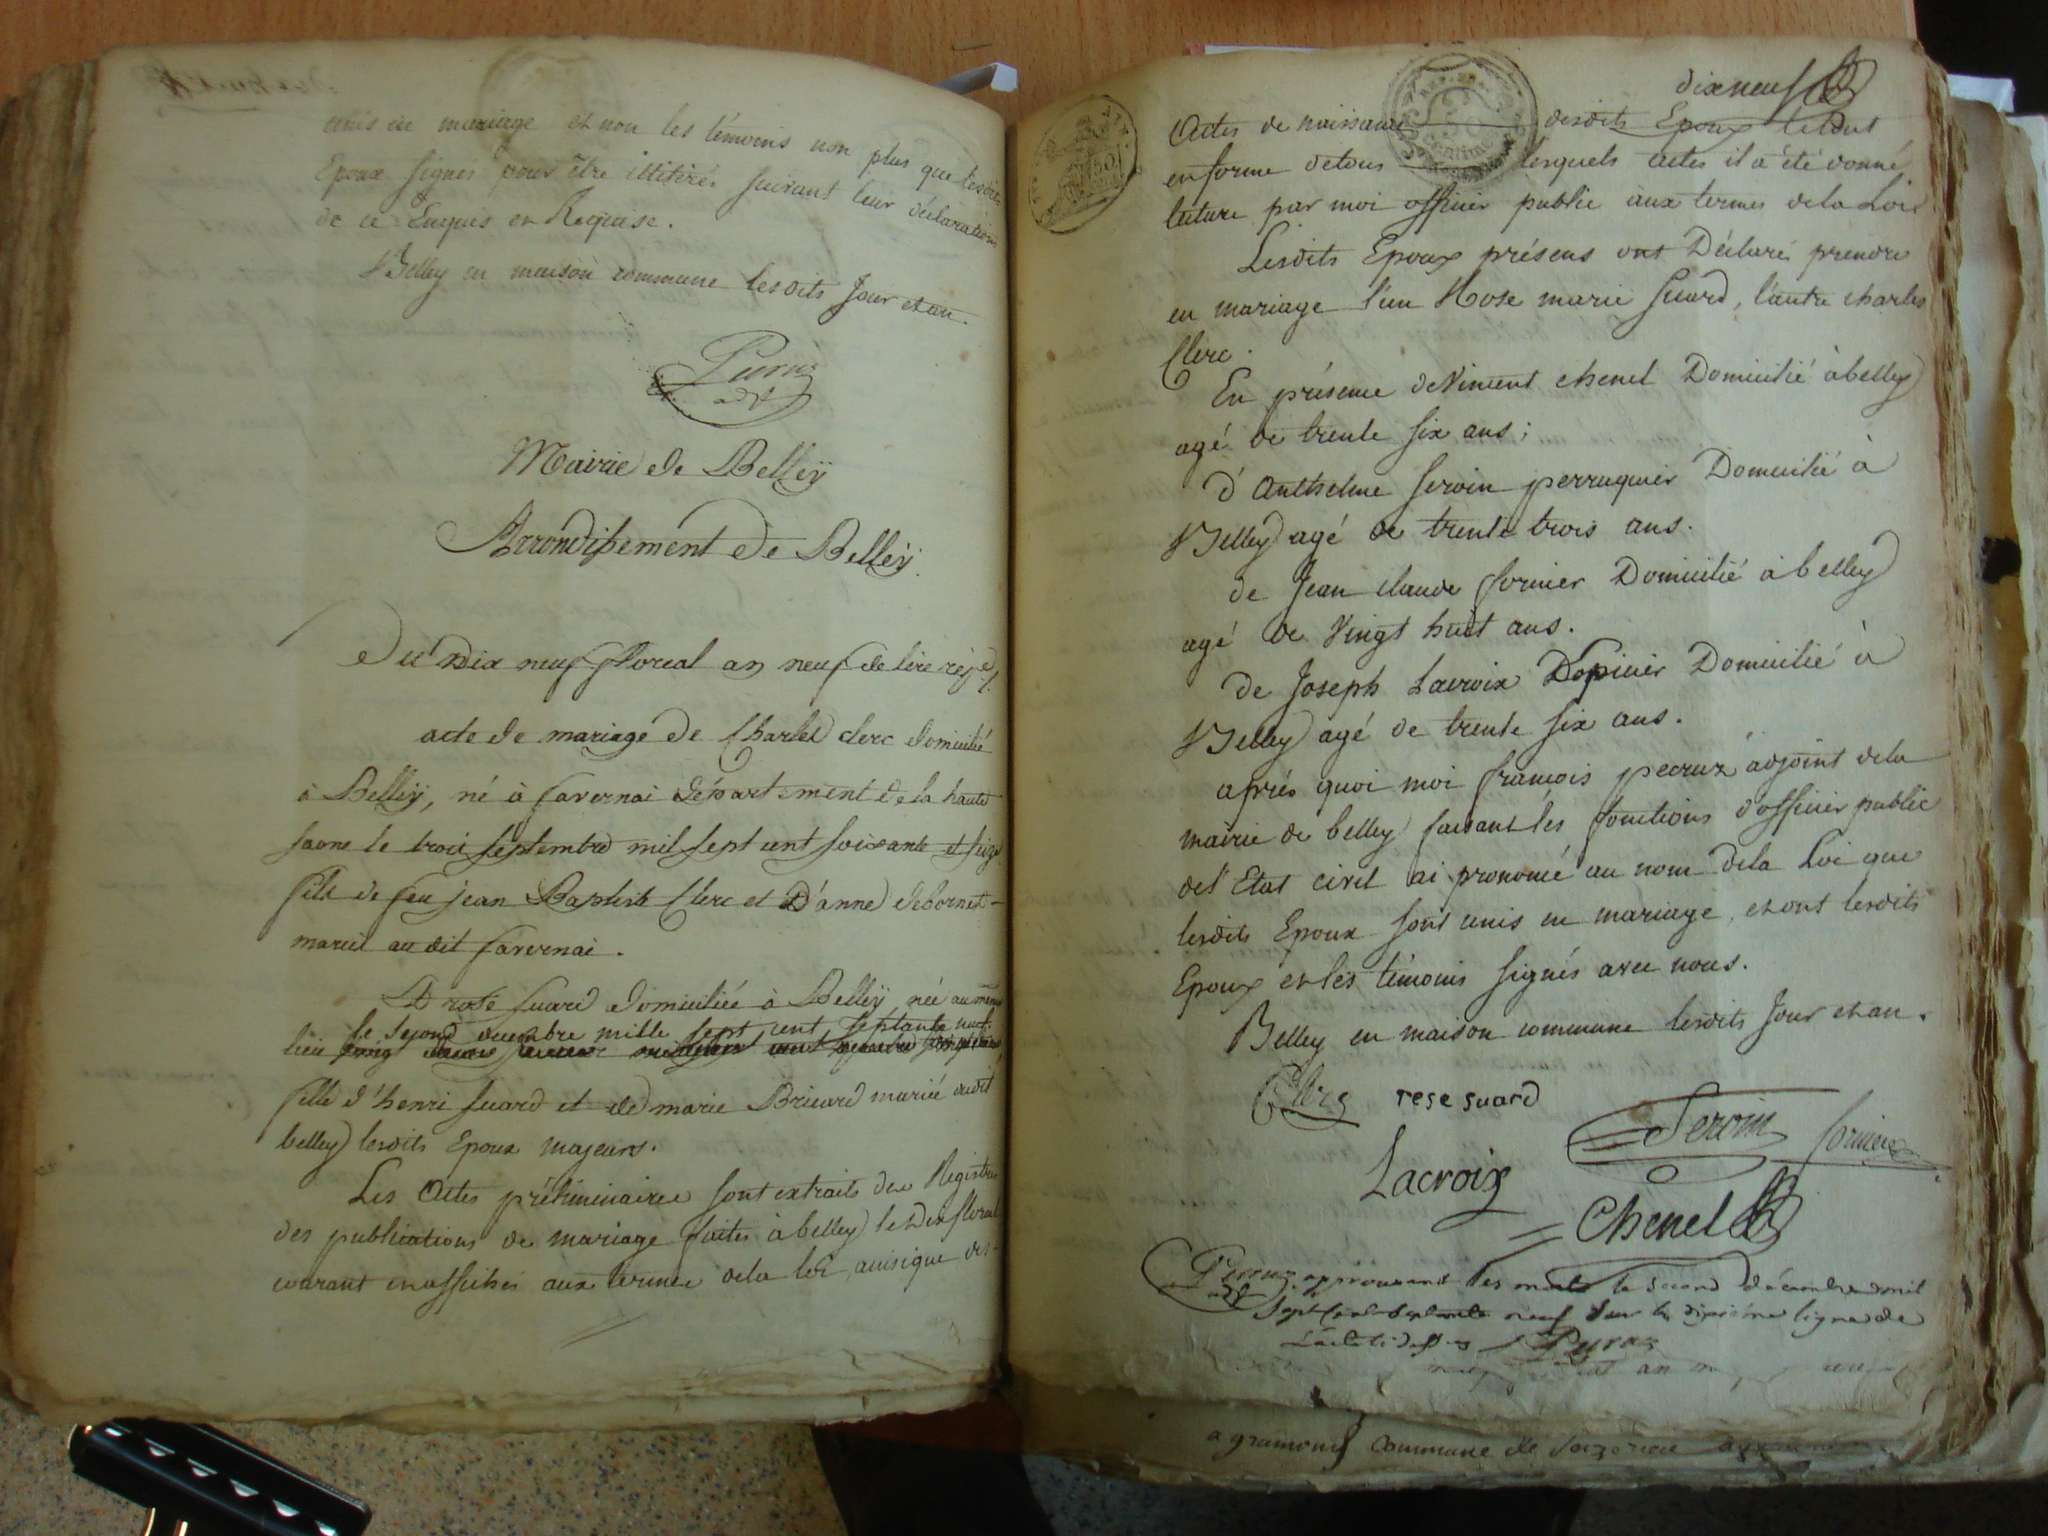 unis en mariage et non les témoins non plus que lesdits
Epoux signés pour être illitérés suivant leur déclaration
de ce Enquis et Requise.
Belley en maison commune lesdits Jour et an.
Mairie de Belleÿ
Arrondissement de Belleÿ.
Du dix neuf floreal an neuf de l'ère
acte de mariage de Charles clerc domicilié
à Belleÿ, né à favernai département de la haute
saone le trois septembre mil sept cent soixante et seize
fils de feu jean Baptiste Clerc et D'anne debornet
mariés au dit favernai.
Et rose suard domiciliée à Belleÿ née au même
le second decembre mille sept cent septante neuf.
lieu
fille d'henri suard et de marie Bricard mariés audit
belley lesdits Epoux majeurs.
Les Actes préliminaires sont extraits des Registres
des publications de mariage faites à belley le dix floreal
courant et affichés aux termes de la loi, ainsique des
dix neuf
Actes de naissance desdits Epoux le tout
en forme de tous lesquels actes il a été donné
lecture par moi officier public aux termes de la Loi.
Lesdits Epoux présens ont Déclaré prendre
en mariage l'un Rose marie Suard, l'autre charles
Clerc.
En présence de Vincent chenel Domicilié à belley
agé de trente six ans;
d'Anthelme Servin perruquier Domicilié à
Belley agé de trente trois ans.
de Jean claude fornier Domicilié à belley
agé de Vingt huit ans.
de Joseph Lacroix Domicilié à
Belley agé de trente six ans.
après quoi moi françois peruz adjoint de la
mairie de belley faisant les fonctions d'officier public
de l'Etat civil ai prononcé au nom de la Loi que
lesdits Epoux sont unis en mariage, et ont lesdits
Epoux et les témoins signés avec nous.
Belley en maison commune lesdits Jour et an.
Clerc rese suard Servin fornier
Lacroix
Chenel
approuvant les mots le second décembre mil
sept cent septante neuf sur la dixième ligne de
a commune de